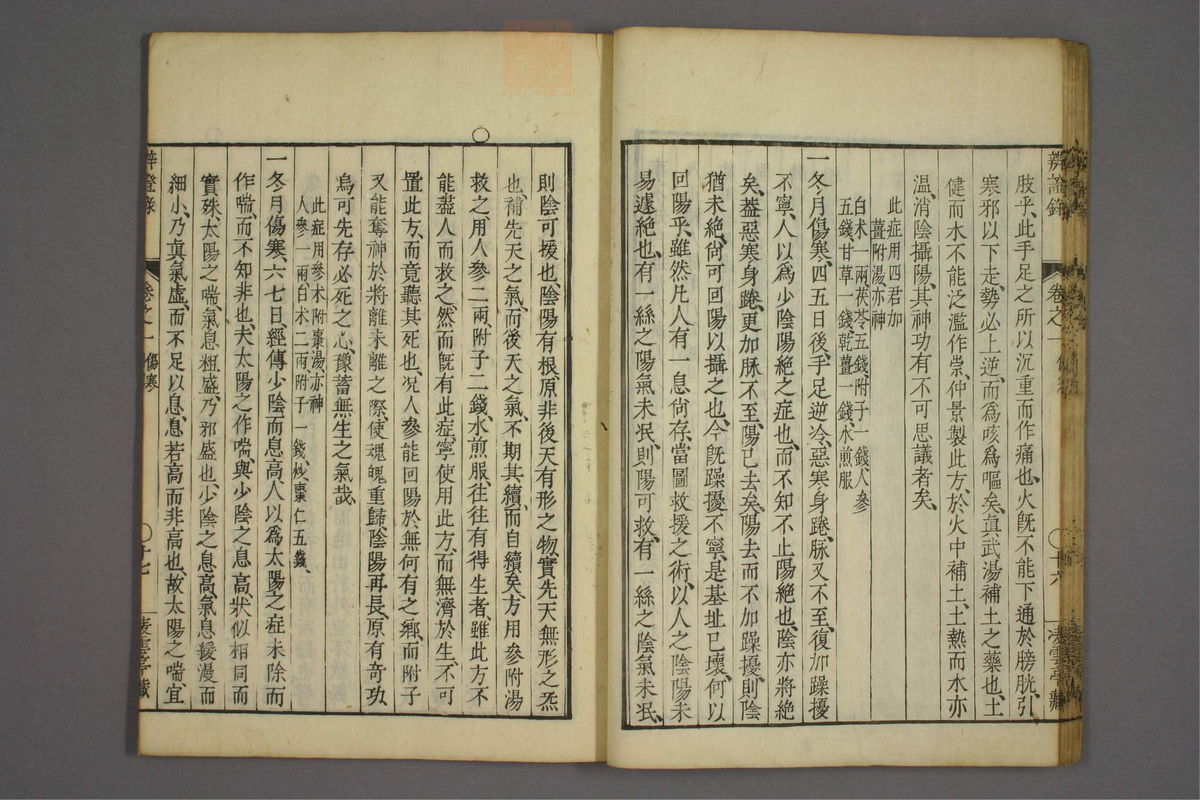 辨證錄 卷之一 傷寒 十六 凌雲亭藏
肢乎、此手足之所以沉重而作痛也、火既不能下通於膀胱、引
寒邪以下走、勢必上逆、而爲咳爲嘔矣、眞武湯補土之藥也、土
健而水不能泛濫作祟、仲景製此方、於火中補土、土熱而水亦
溫、消陰攝陽、其神功有不可思議者矣、
此症用四君加
薑附湯亦神
白术一兩茯苓五錢附子一錢人參
五錢甘草一錢乾薑一錢水煎服
一冬月傷寒、四五日後、手足逆冷、惡寒身踡、脉又不至、復加躁擾
不寧、人以爲少陰陽絶之症也、而不知不止陽絶也、陰亦將絶
矣、葢惡寒身踡、更加脉不至、陽已去矣、陽去而不加躁擾、則陰
猶未絶、尙可回陽以攝之也、今既躁擾不寧、是基址已壞、何以
回陽乎、雖然凡人有一息尙存、當圖救援之術、以人之陰陽未
易遽絶也、有一絲之陽氣未泯、則陽可救、有一絲之陰氣未泯、
則陰可援也、陰陽有根原、非後天有形之物、實先天無形之炁
也、補先天之氣、而後天之氣、不期其續、而自續矣、方用參附湯
救之、用人參二兩、附子二錢、水煎服、往往有得生者、雖此方不
能盡人而救之、然而既有此症、寧使用此方、而無濟於生、不可
置此方、而竟聽其死也、况人參能回陽於無何有之鄉、而附子
又能奪神於將離未離之際、使魂魄重歸、陰陽再長、原有奇功、
烏可先存必死之心、豫蓄無生之氣哉、
此症用參术附棗湯、亦神
人參一兩白术二兩附子一錢炒棗仁五錢、
一冬月傷寒、六七日、經傳少陰、而息高、人以爲太陽之症未除而
作喘、而不知非也、夫太陽之作喘、與少陰之息高、狀似相同而
實殊、太陽之喘、氣息粗盛、乃邪盛也、少陰之息高、氣息緩漫而
細小、乃眞氣虛、而不足以息、息若高而非高也、故太陽之喘、宜
辨證錄 卷之一 傷寒 十七 凌雲亭藏